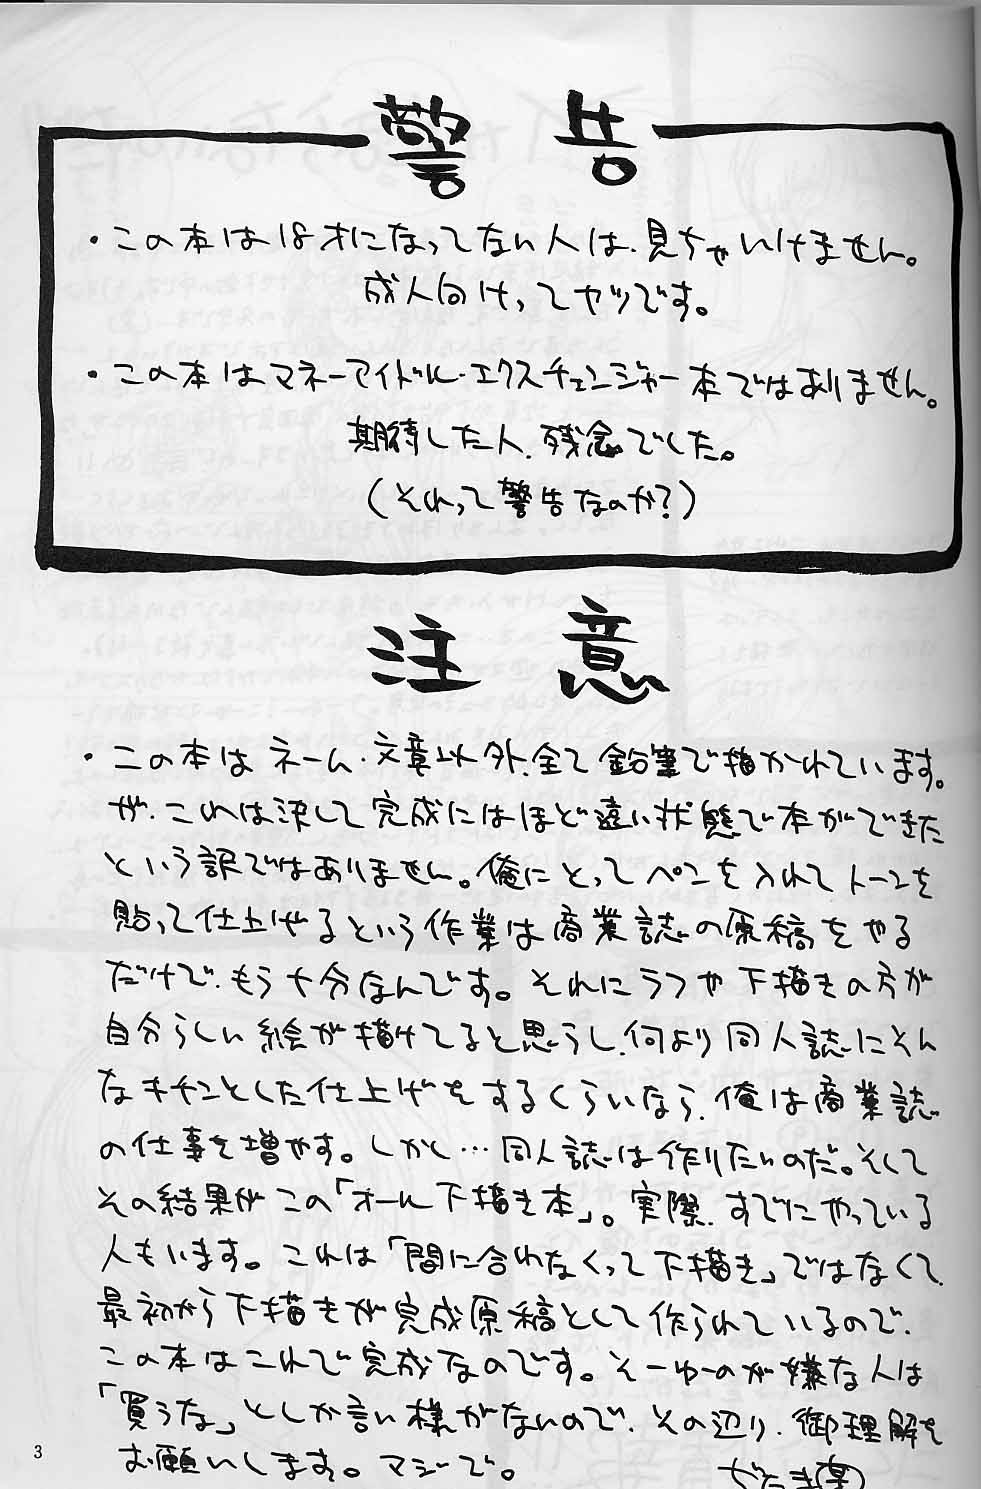 警告
・この本は18才になってない人は、見ちゃいけません。
成人向けってヤツです。
・この本はマネーアイドル・エクスチェンジャー本ではありません。
期待した人、残念でした。
(それって警告なのか?)
注意
・この本はネーム・文章以外、全て鉛筆で描かれています。
が、これは決して完成にはほど遠い状態で本ができた
という訳ではありません。俺にとってペンを入れてトーンを
貼って仕上げるという作業は商業誌の原稿をやる
だけで、もう十分なんです。それにラフや下描きの方が
自分らしい絵が描けてると思うし、何より同人誌にそん
なキチンとした仕上げをするくらいなら、俺は商業誌
の仕事を増やす。しかし…同人誌は作りたいのだ。そして
その結果がこの「オール下描き本」。実際、すでにやっている
人もいます。これは「間に合わなくって下描き」ではなくて、
最初から下描きが完成原稿として作られているので、
この本はこれで完成なのです。そーゆーのが嫌な人は
「買うな」としか言い様がないので、その辺り、御理解を
お願いします。マジで。
3